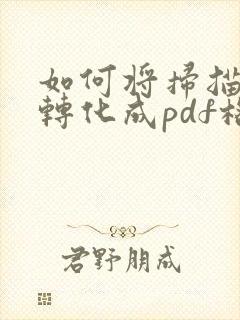 如何将掃描
轉化成pdf格
君野朋成